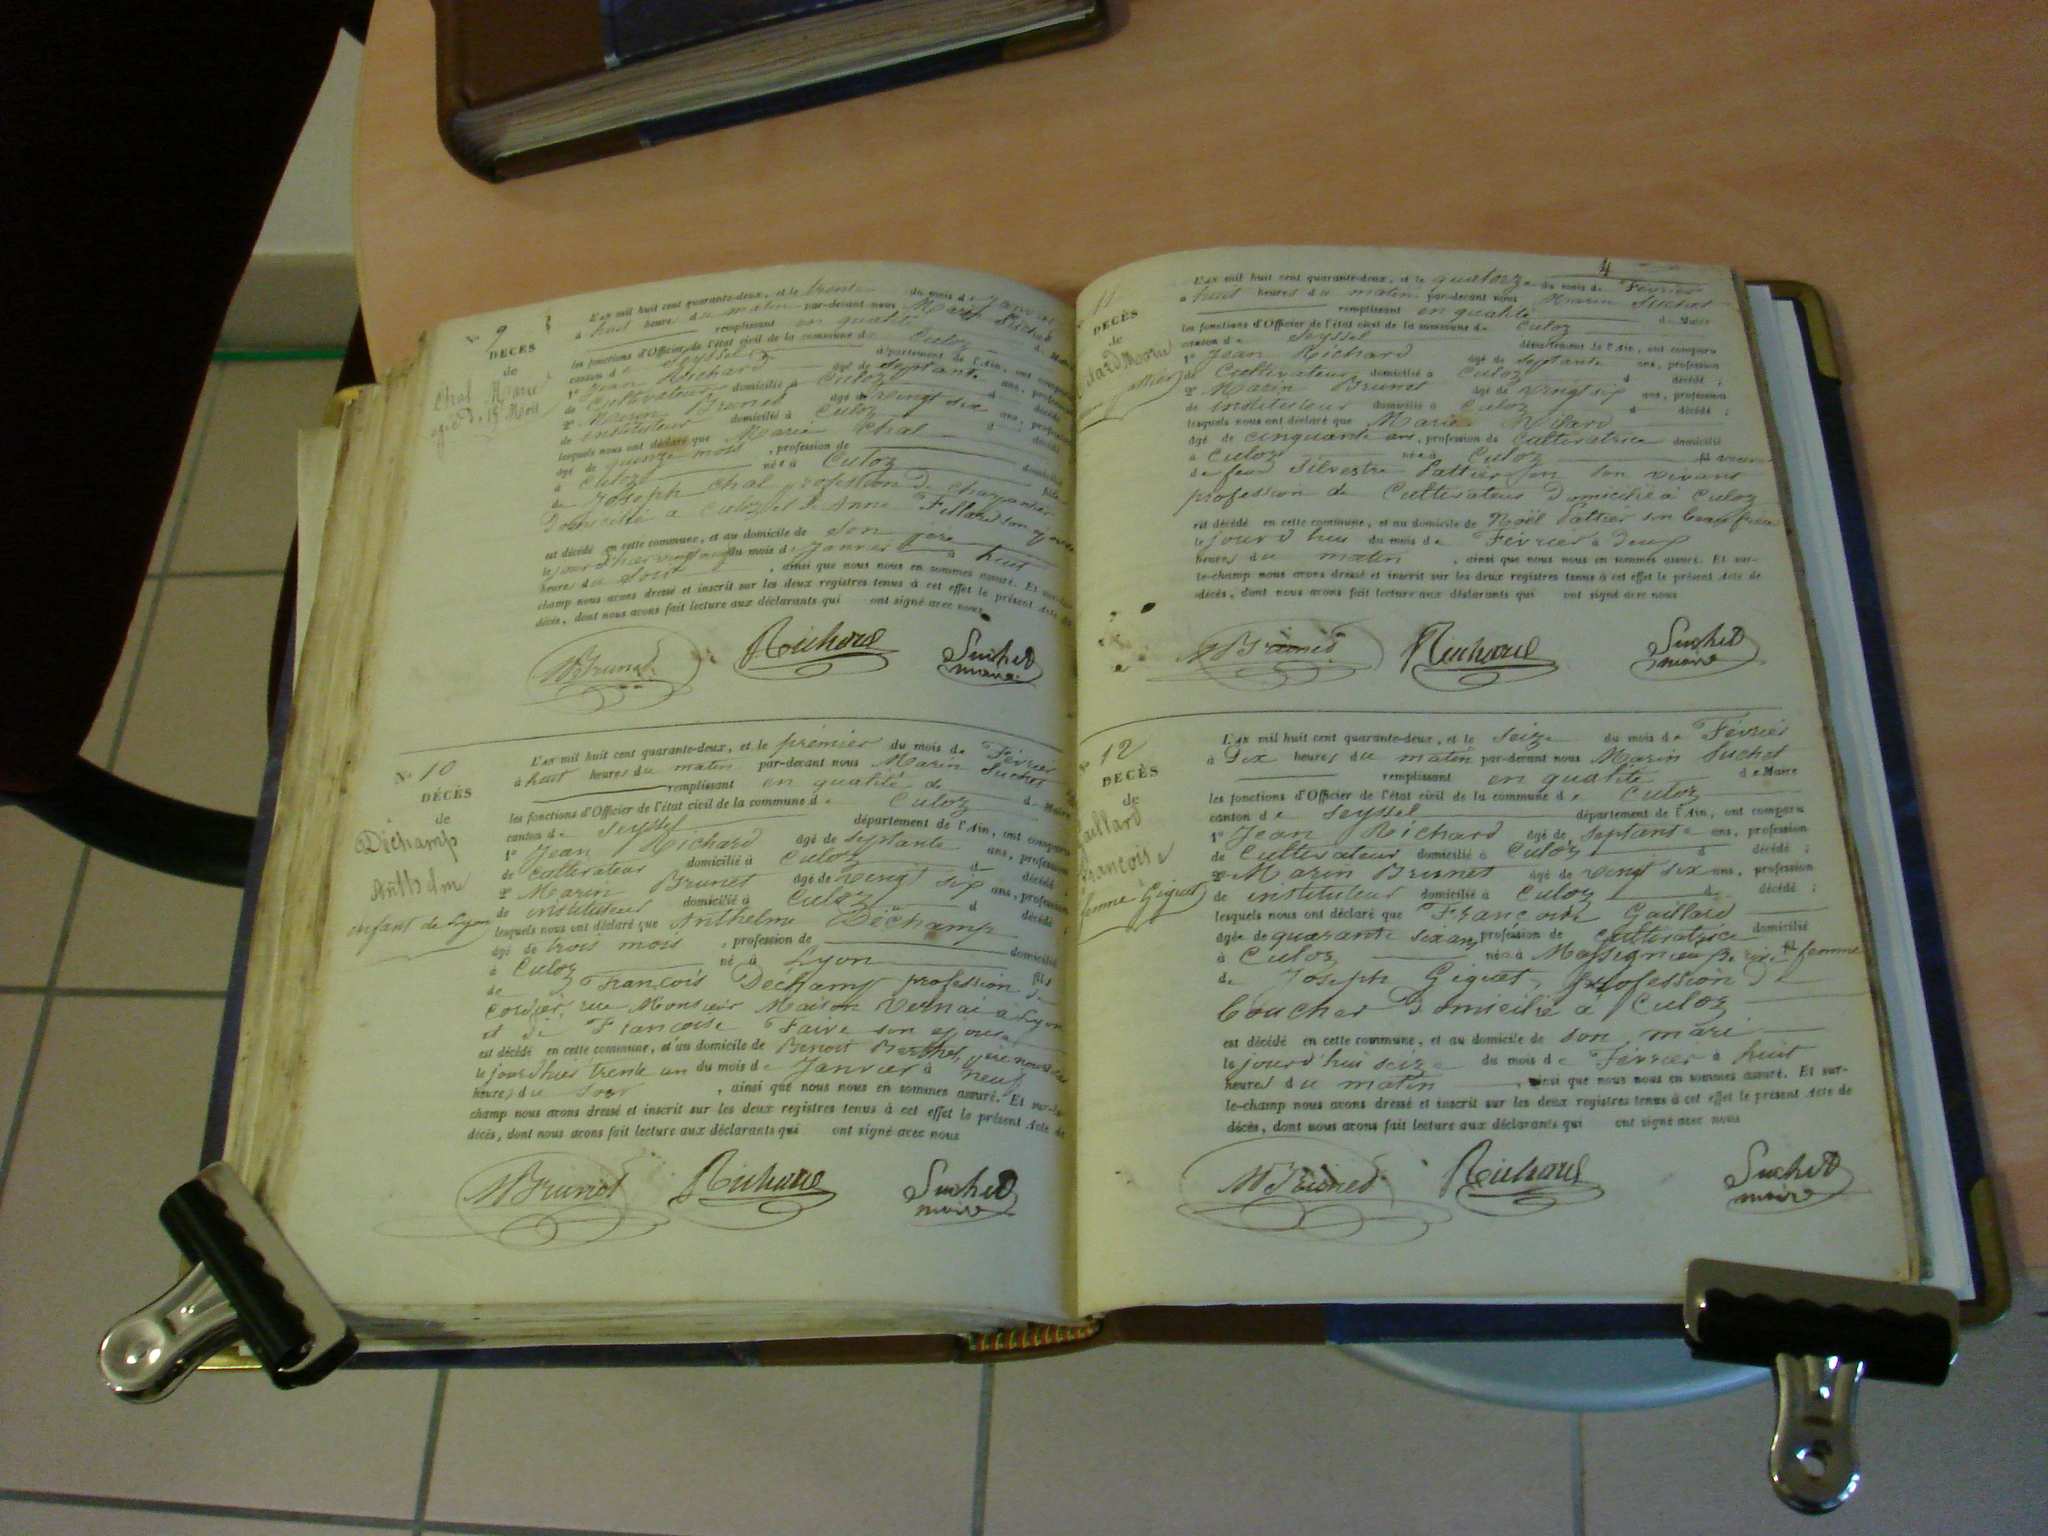 No 9
DÉCÈS
de
Chal Marie
agée de 15 Mois
L'AN mil huit cent quarante-deux, et le trente du mois de Janvier
à huit heures du matin par-devant nous Marin Suchet
remplissant en qualité de Maire
les fonctions d'Officier de l'état civil de la commune de Culoz
canton de Seyssel département de l'Ain, ont comparu
1° Jean Richard âgé de septante ans, profession
de Cultivateur domicilié à Culoz d décédé ;
2° Marin Brunet âgé de vingt six ans, profession
de instituteur domicilié à Culoz d décédé
lesquels nous ont déclaré que Marie Chal
âgé de quinze mois , profession de domicilié
à Culoz née à Culoz fille
de Joseph Chal profession de charpentier
domicilié à Culoz et de Anne son épouse
est décédé en cette commune, et au domicile de son père
le du mois de Janvier à huit
heures du soir , ainsi que nous nous en sommes assuré. Et sur-le-
champ nous avons dressé et inscrit sur les deux registres tenus à cet effet le présent Acte de
décès, dont nous avons fait lecture aux déclarants qui ont signé avec nous
MBrunet Richard Suchet
maire
No 10
DÉCÈS
de
Déchamp
Anthelm
enfant de Lyon
L'AN mil huit cent quarante-deux, et le premier du mois de Février
à huit heures du matin par-devant nous Marin Suchet
remplissant en qualité de Maire
les fonctions d'Officier de l'état civil de la commune de Culoz
canton de Seyssel département de l'Ain, ont comparu
1° Jean Richard âgé de septante ans, profession
de cultivateur domicilié à Culoz d décédé ;
2° Marin Brunet âgé de vingt six ans, profession
de instituteur domicilié à Culoz d décédé ;
lesquels nous ont déclaré que Anthelme Déchamp
âgé de trois mois , profession de domicilié
à Culoz né à Lyon fils
de François Déchamp profession de
cordier, rue Monsieur Maison Vernai à Lyon
et de Françoise Faivre son epouse
est décédé en cette commune, et au domicile de Benoit Berthet, père nourricier
le jourdhier trente un du mois de Janvier à neuf
heures du soir , ainsi que nous nous en sommes assuré. Et sur-le-
champ nous avons dressé et inscrit sur les deux registres tenus à cet effet le présent Acte de
décès, dont nous avons fait lecture aux déclarants qui ont signé avec nous
MBrunet Richard Suchet
maire
4
11
DÉCÈS
de
Marie
L'AN mil huit cent quarante-deux, et le quatorze du mois de Février
à huit heures du matin par-devant nous Marin Suchet
remplissant en qualité de Maire
les fonctions d'Officier de l'état civil de la commune de Culoz
canton de Seyssel département de l'Ain, ont comparu
1° Jean Richard âgé de septante ans, profession
de Cultivateur domicilié à Culoz d décédé ;
2° Marin Brunet âgé de vingt six ans, profession
de instituteur domicilié à Culoz d décédé ;
lesquels nous ont déclaré que Marie
âgé de cinquante ans, profession de Cultivatrice domicilié
à Culoz née à Culoz veuve
de feu Silvestre Pattier en son vivant
profession de Cultivateur domicilié à Culoz
est décédé en cette commune, et au domicile de Noël Pattier son beau frère
le jourd'hui du mois de Février à deux
heures du matin , ainsi que nous nous en sommes assuré. Et sur-
le-champ nous avons dressé et inscrit sur les deux registres tenus à cet effet le présent Acte de
décès, dont nous avons fait lecture aux déclarants qui ont signé avec nous
MBrunet Richard Suchet
maire
No 12
DÉCÈS
de
Gaillard
Françoise
femme Giguet
L'AN mil huit cent quarante-deux, et le seize du mois de Février
à Dix heures du matin par-devant nous Marin Suchet
remplissant en qualité de Maire
les fonctions d'Officier de l'état civil de la commune de Culoz
canton de Seyssel département de l'Ain, ont comparu
1° Jean Richard âgé de septante ans, profession
de Cultivateur domicilié à Culoz d décédé ;
2° Marin Brunet âgé de vingt six ans, profession
de instituteur domicilié à Culoz d décédé ;
lesquels nous ont déclaré que Françoise Gaillard
âgée de quarante six ans, profession de cultivatrice domicilié
à Culoz née à femme
de Joseph Giguet, profession de
boucher domicilié à Culoz
est décédé en cette commune, et au domicile de son mari
le jourd'hui seize du mois de Février à huit
heures du matin , ainsi que nous nous en sommes assuré. Et sur-
le-champ nous avons dressé et inscrit sur les deux registres tenus à cet effet le présent Acte de
décès, dont nous avons fait lecture aux déclarants qui ont signé avec nous
MBrunet Richard Suchet
maire